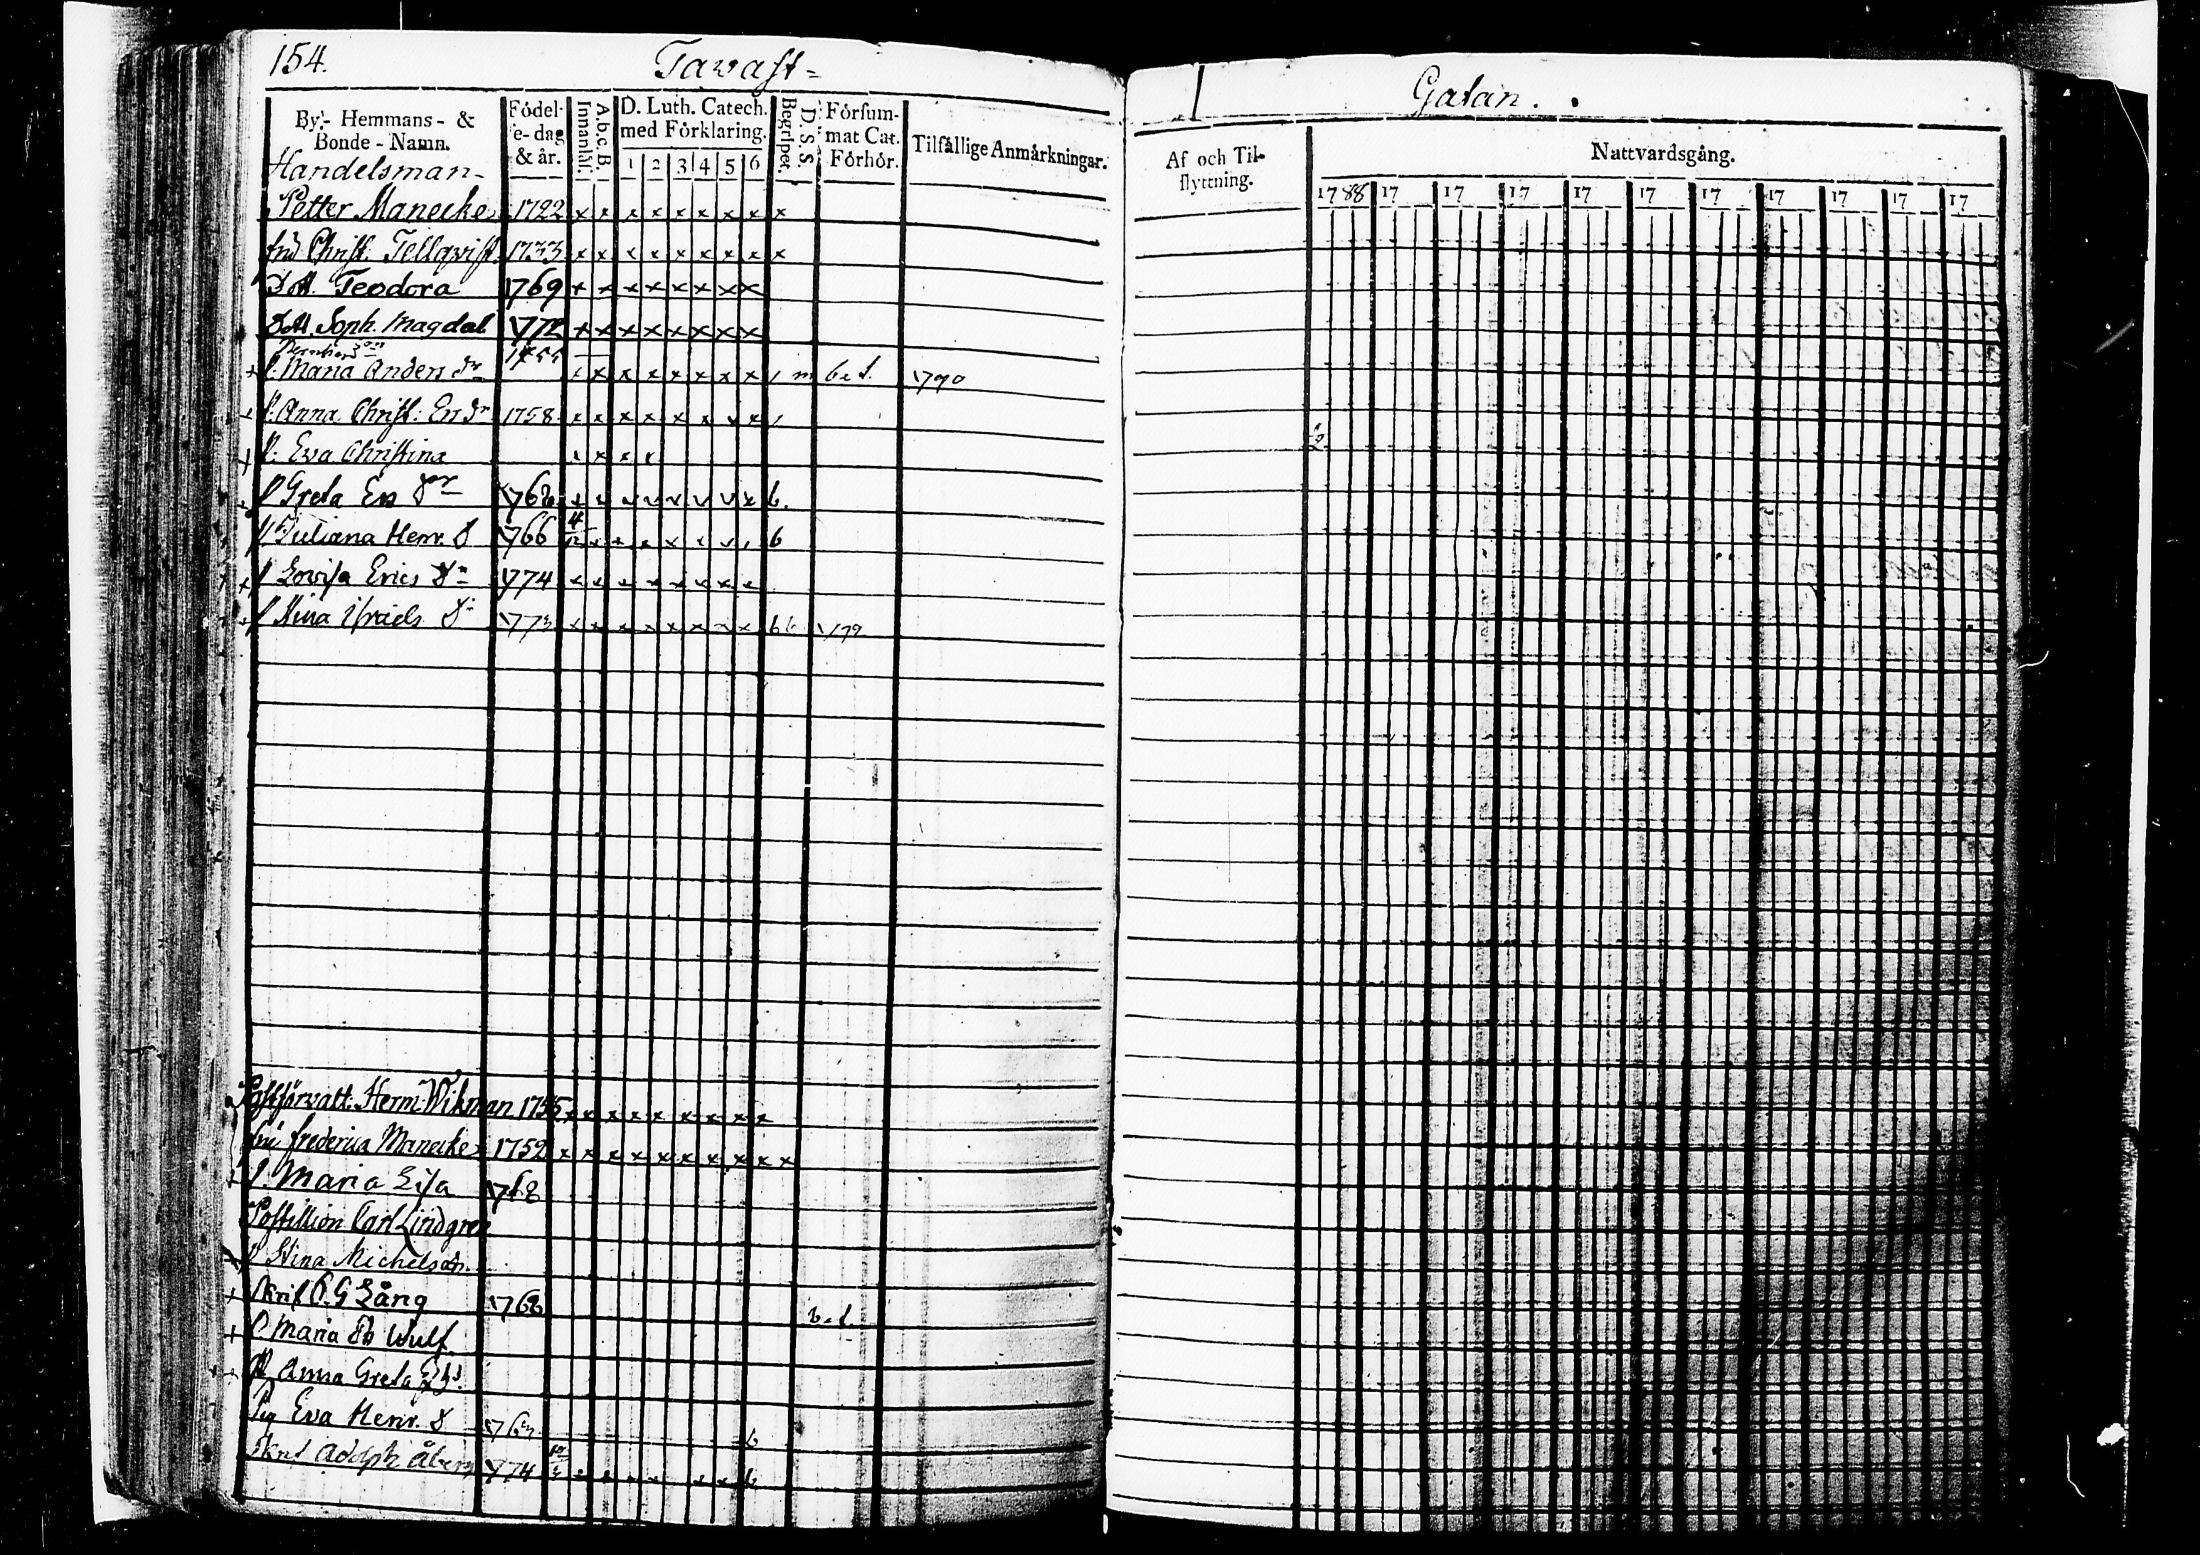 154. Tavast= Gatan.
By,- Hemmans- & Bonde-Namn.
Födelse-dag & år.
Innanläs.
A.b.c.B.
D. Luth. Catech. med Förklaring.
1 2 3 4 5 6
Begripet.
D.S.S.
Försummat Cat. Förhör.
Tilfällige Anmärkningar.
Af och Tilflyttning.
Nattvardsgång.
1788 17 17 17 17 17 17 17 17 17 17
Handelsman-
Petter Manecke 1722 x x x x x x x x x
fru Christ. Tellqvist 1733 x x x x x x x x x
Dott. Teodora 1769 x x x x x x x x
Dott. Soph. Magdal. 1772 x x x x x x x x
P. Maria Anders dr 1755 x x x x x x x x bet. 1790
P. Anna Christ: Ers dr 1758 x x x x x x x x
P. Eva Christina x x x x
P Greta Ers dr b.
P Juliana Henr. D 1766 b
P Lovisa Erics Dr 1774 x x x x x x x x
P Stina Israels Dr 1773 x x x x x x x x b
Postförvalt: Herm: Wikman x x x x x x x x
fru frederica Manecke 1752 x x x x x x x x x x
P. Maria Lisa 1768
Postillion Carl Lindgren
P Stina Michelsdr.
Skrif. P. G Lång
P Maria Wulf
Anna Greta
Pig Eva Henr. D b
Adolph Åberg 1774 b